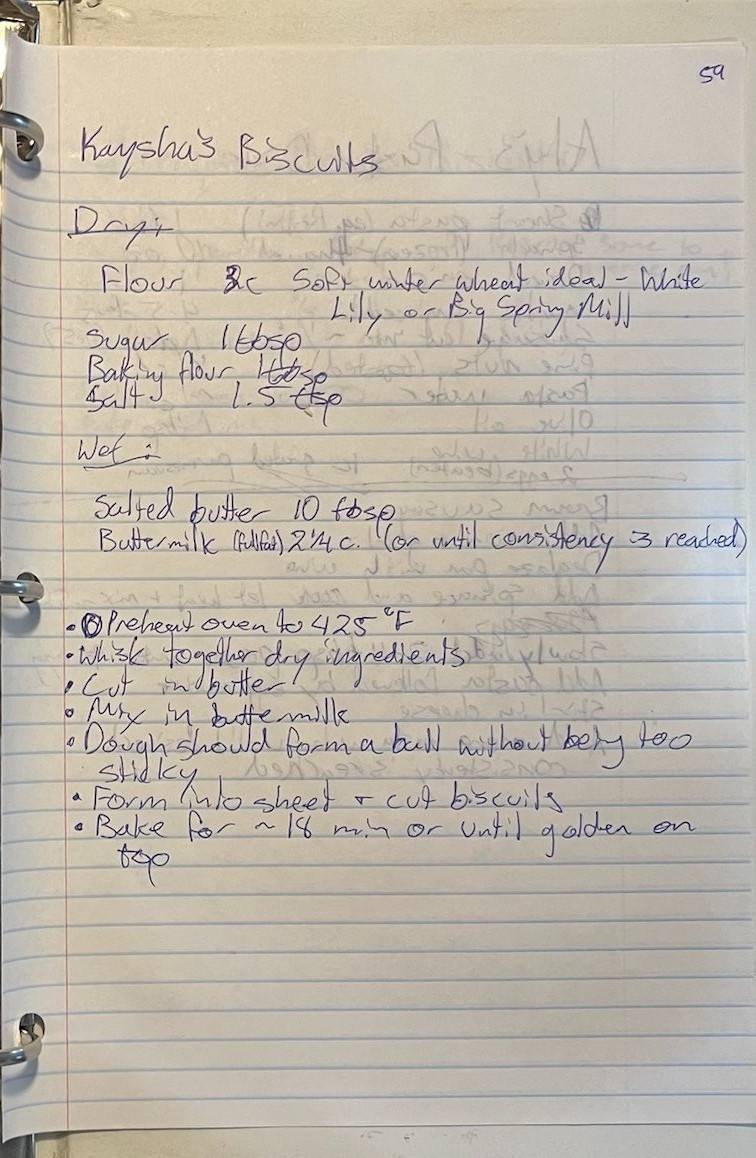 59
Kaysha's Biscuits
Dry:
Flour 3c Soft winter wheat ideal - White
Lily or Big Spring Mill
Sugar 1 tbsp
Baking flour 1 tbsp
Salt 1.5 tsp
Wet:
Salted butter 10 tbsp
Buttermilk (full fat) 2 1/4 c. (or until consistency is reached)
• Preheat oven to 425 °F
• Whisk together dry ingredients
• Cut in butter
• Mix in buttermilk
• Dough should form a ball without being too
sticky
• Form into sheet + cut biscuits
• Bake for ~18 min or until golden on
top